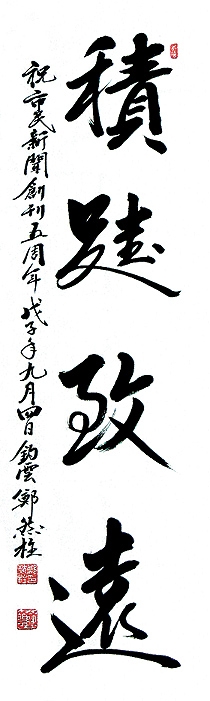 積跬致遠
祝市民新聞創刊五周年 戊子年九月四日